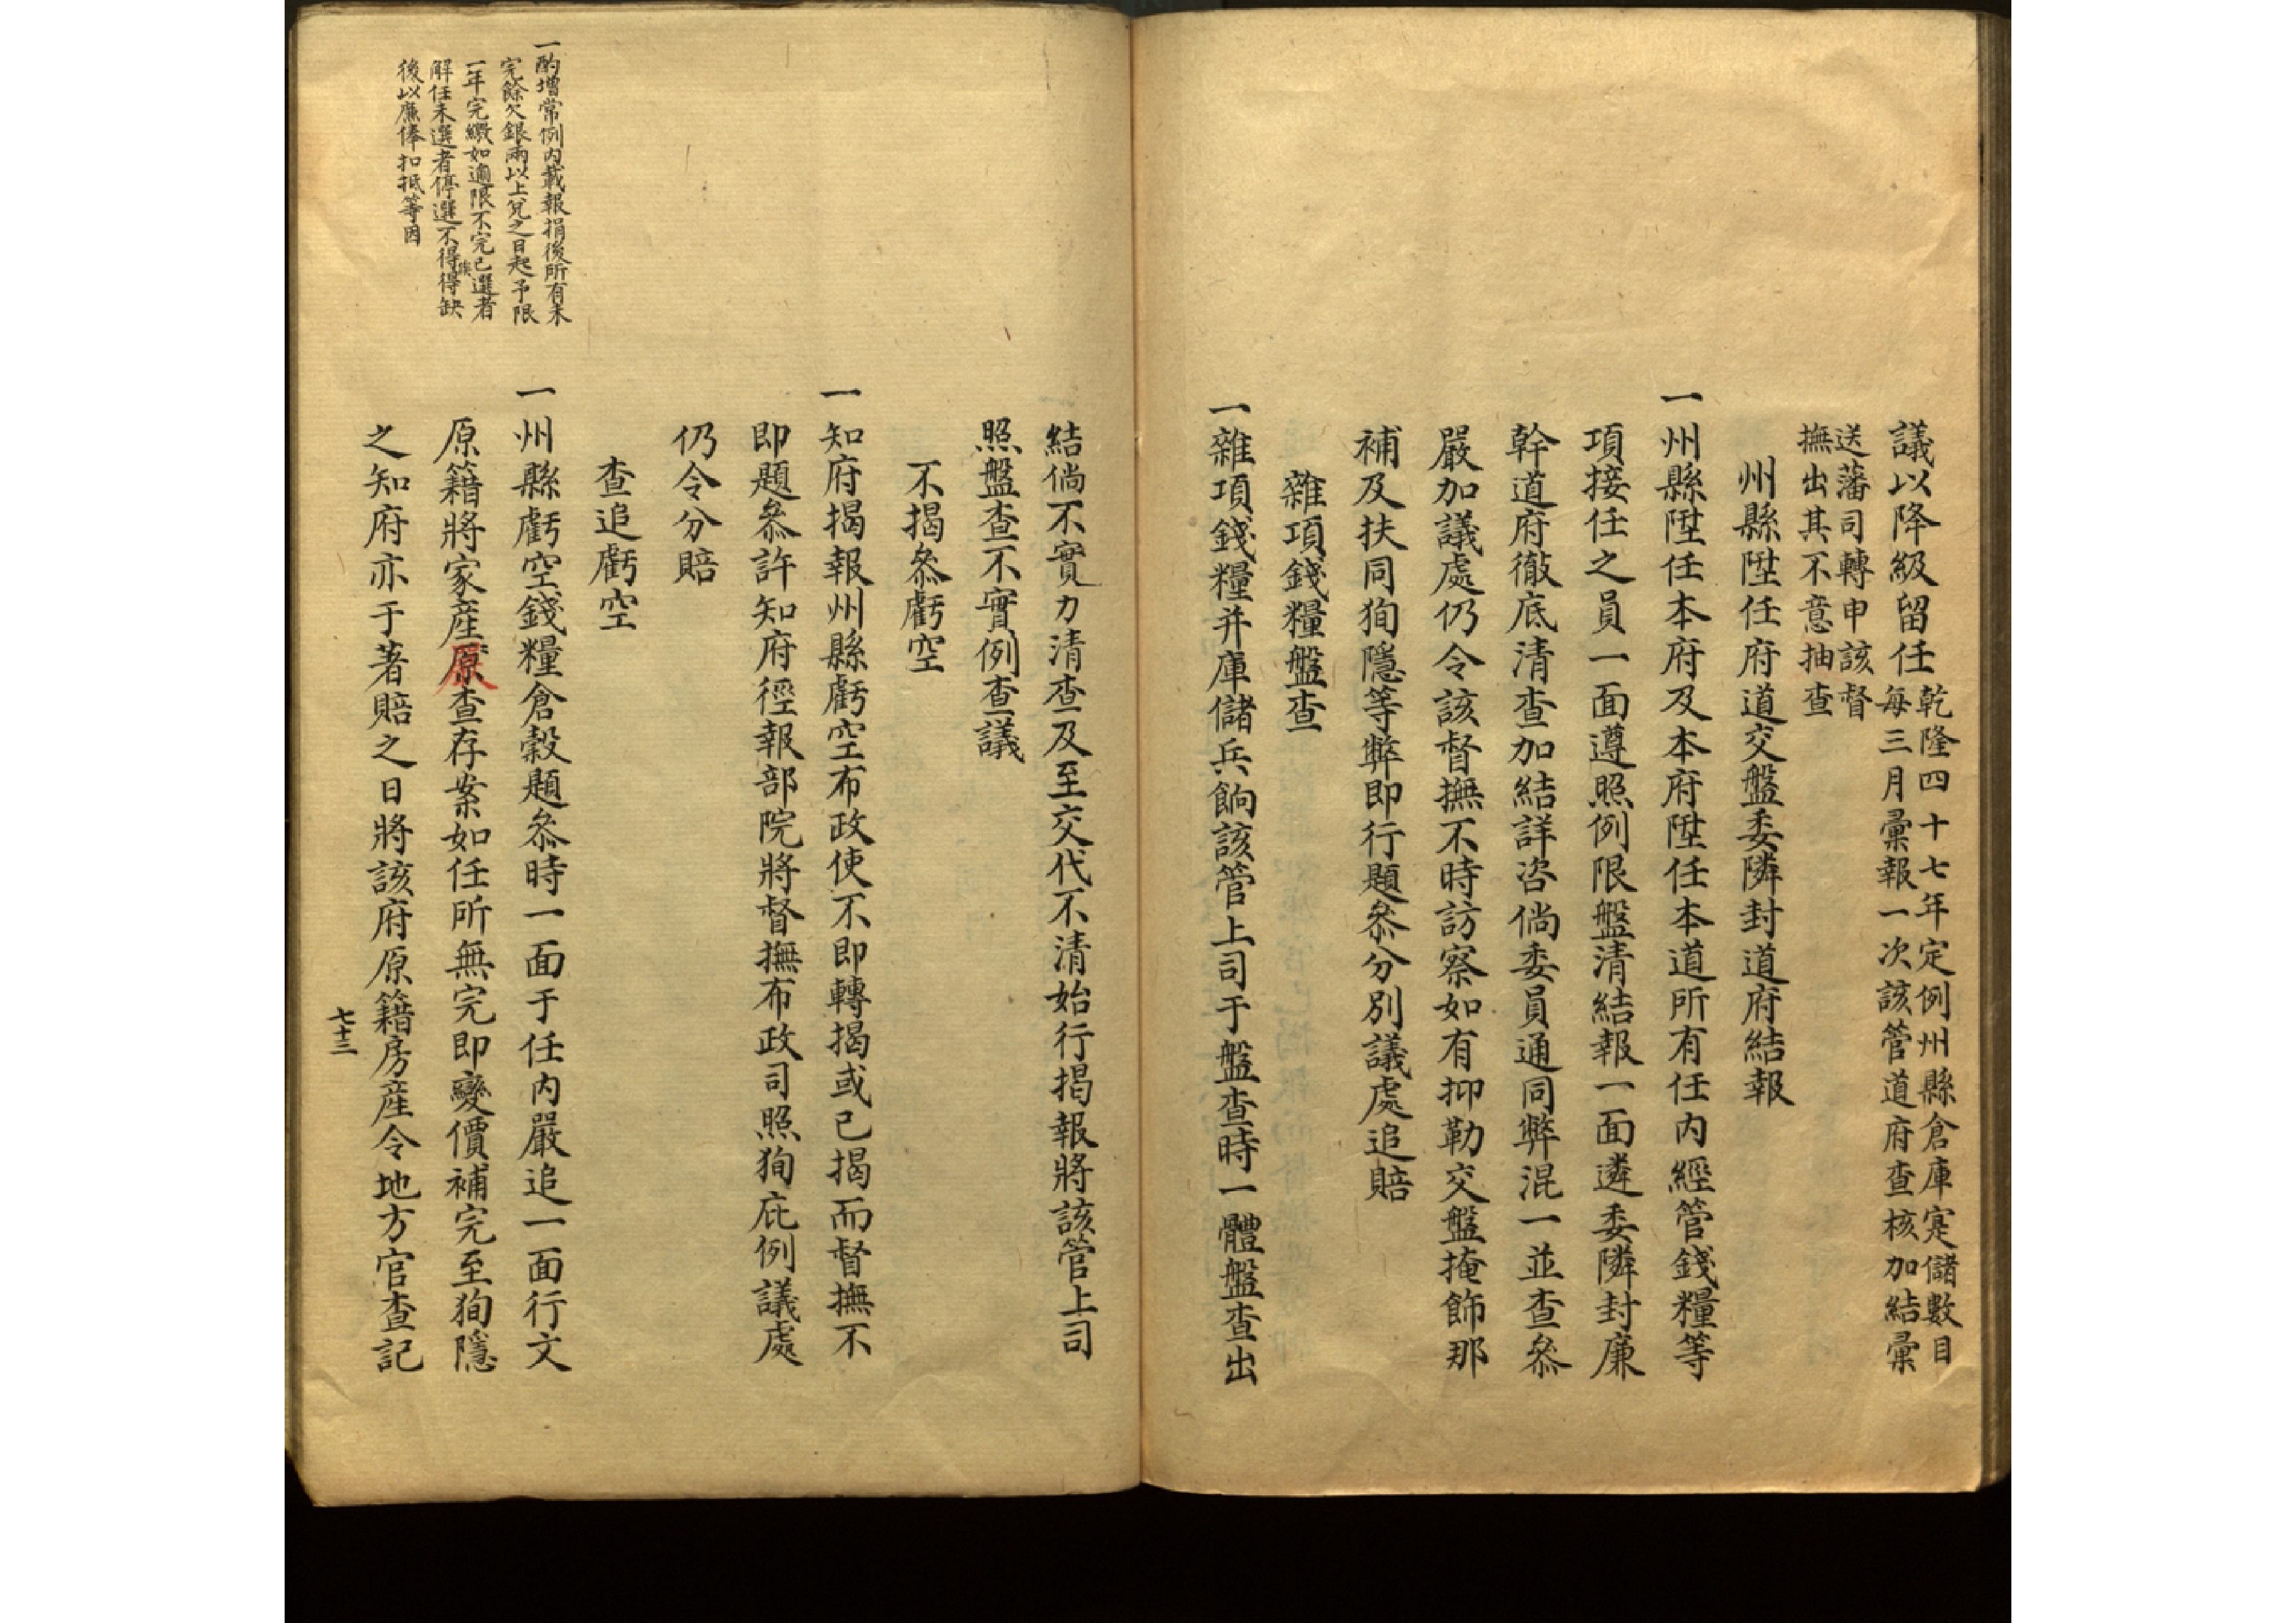 議以降級留任乾隆四十七年定例州縣倉庫寔儲數目
每三月彙報一次該管道府查核加結彙
送藩司轉申該督
撫出其不意抽查
州縣陞任府道交盤委隣封道府結報
一州縣陞任本府及本府陞任本道所有任内經管錢糧等
項接任之員一面遵照例限盤清結報一面遴委隣封廉
幹道府徹底清查加結詳咨倘委員通同弊混一並查叅
嚴加議處仍令該督撫不時訪察如有抑勒交盤掩飾那
補及扶同狥隱等弊即行題叅分別議處追賠
雜項錢糧盤查
一雜項錢糧并庫儲兵餉該管上司于盤查時一體盤查出
結倘不實力清查及至交代不清始行揭報將該管上司
照盤查不實例查議
不揭叅虧空
一知府揭報州縣虧空布政使不即轉揭或已揭而督撫不
即題叅許知府徑報部院將督撫布政司照狥庇例議處
仍令分賠
查追虧空
一州縣虧空錢糧倉穀題叅時一面于任内嚴追一面行文
原籍將家產原查存案如任所無完即變價補完至狥隱
之知府亦于著賠之日將該府原籍房產令地方官查記
七十三
一酌增常例内載報捐後所有未
完餘欠銀兩以上兌之日起予限
一年完繳如逾限不完已選者
解任未選者停選不得得缺
俟
後以廉俸扣抵等因